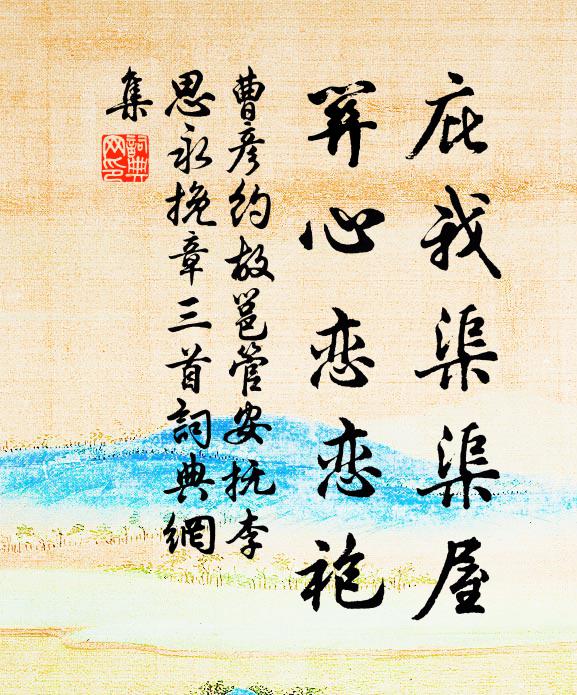 庇我渠渠屋
筭心恋恋袍
曹彦约故邕管安抚李
思永挽章三首詞典網
集
詞典
网印